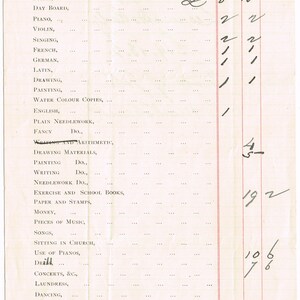 Day Board,
Piano, 2 2
Violin,
Singing, 2 2
French, 1 1
German, 1 1
Latin,
Drawing, 1 1
Painting,
Water Colour Copies,
English, 1
Plain Needlework,
Fancy Do.,
Writing and Arithmetic, 4
Drawing Materials, 5
Painting Do.,
Writing Do.,
Needlework Do.,
Exercise and School Books, 19 2
Paper and Stamps,
Money,
Pieces of Music,
Songs,
Sitting in Church,
Use of Pianos, 10 6
Drill 7 6
Concerts, &c.,
Laundress,
Dancing,